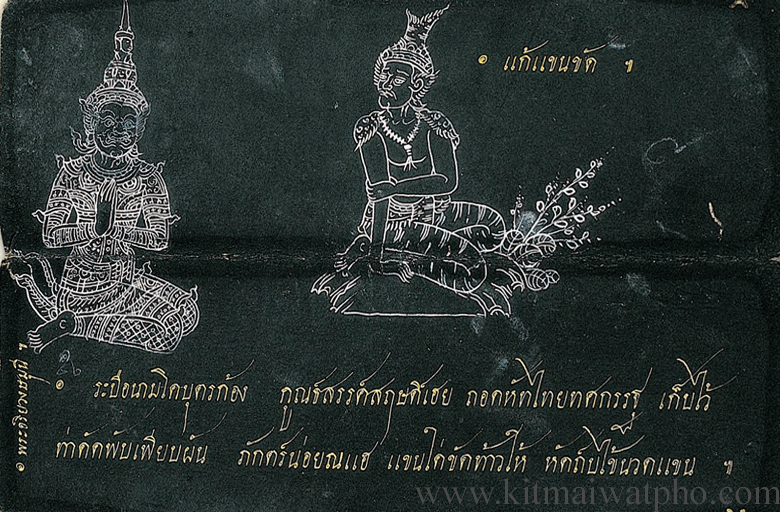 ๏ แก้แขนขัด ฯ
๏ ระบือนามโคบุตรก้อง กูณฑ์สรรค์สฤษดิ์เฮย ถอดหัทไทยทศกรรฐ เก็บไว้
ท่าดัดพับเพียบผัน ภักตร์น่อยณแฮ แขนใค่ขัดท้าวให้ หัดถ์บีไข้นวดแขน ฯ
๏ พระอริยวงษมุนี ฯ
www.kitmaiwatpho.com